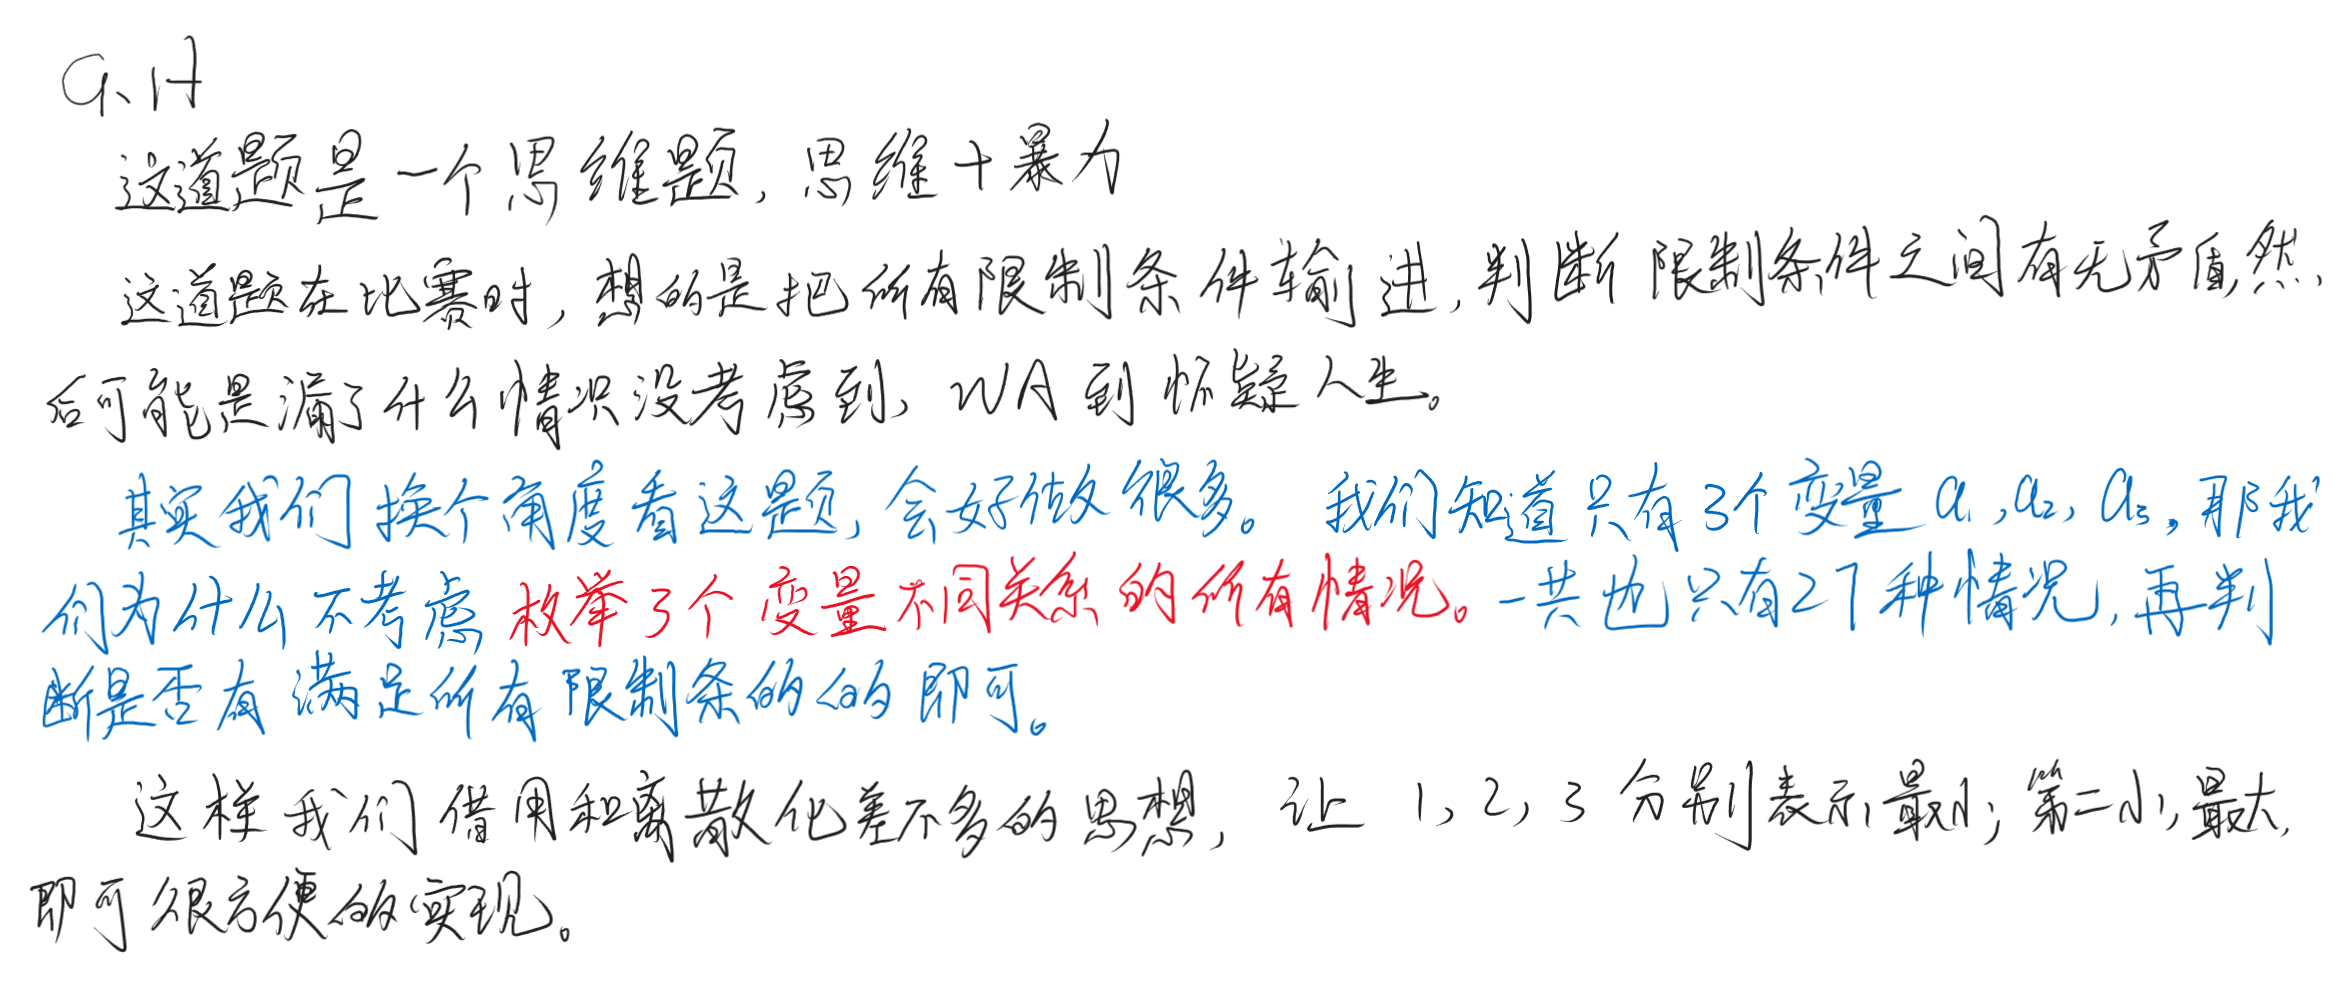 G、H
这道题是一个思维题,思维+暴力
这道题在比赛时,想的是把所有限制条件输进,判断限制条件之间有无矛盾,然
后可能是漏了什么情况没考虑到,WA到怀疑人生。
其实我们换个角度看这题,会好做很多。我们知道只有3个变量a₁,a₂,a₃,那我
们为什么不考虑枚举3个变量不同关系的所有情况。一共也只有27种情况,再判
断是否有满足所有限制条的的即可。
这样我们借用和离散化差不多的思想,让1,2,3分别表示最小,第二小,最大,
即可很方便的实现。